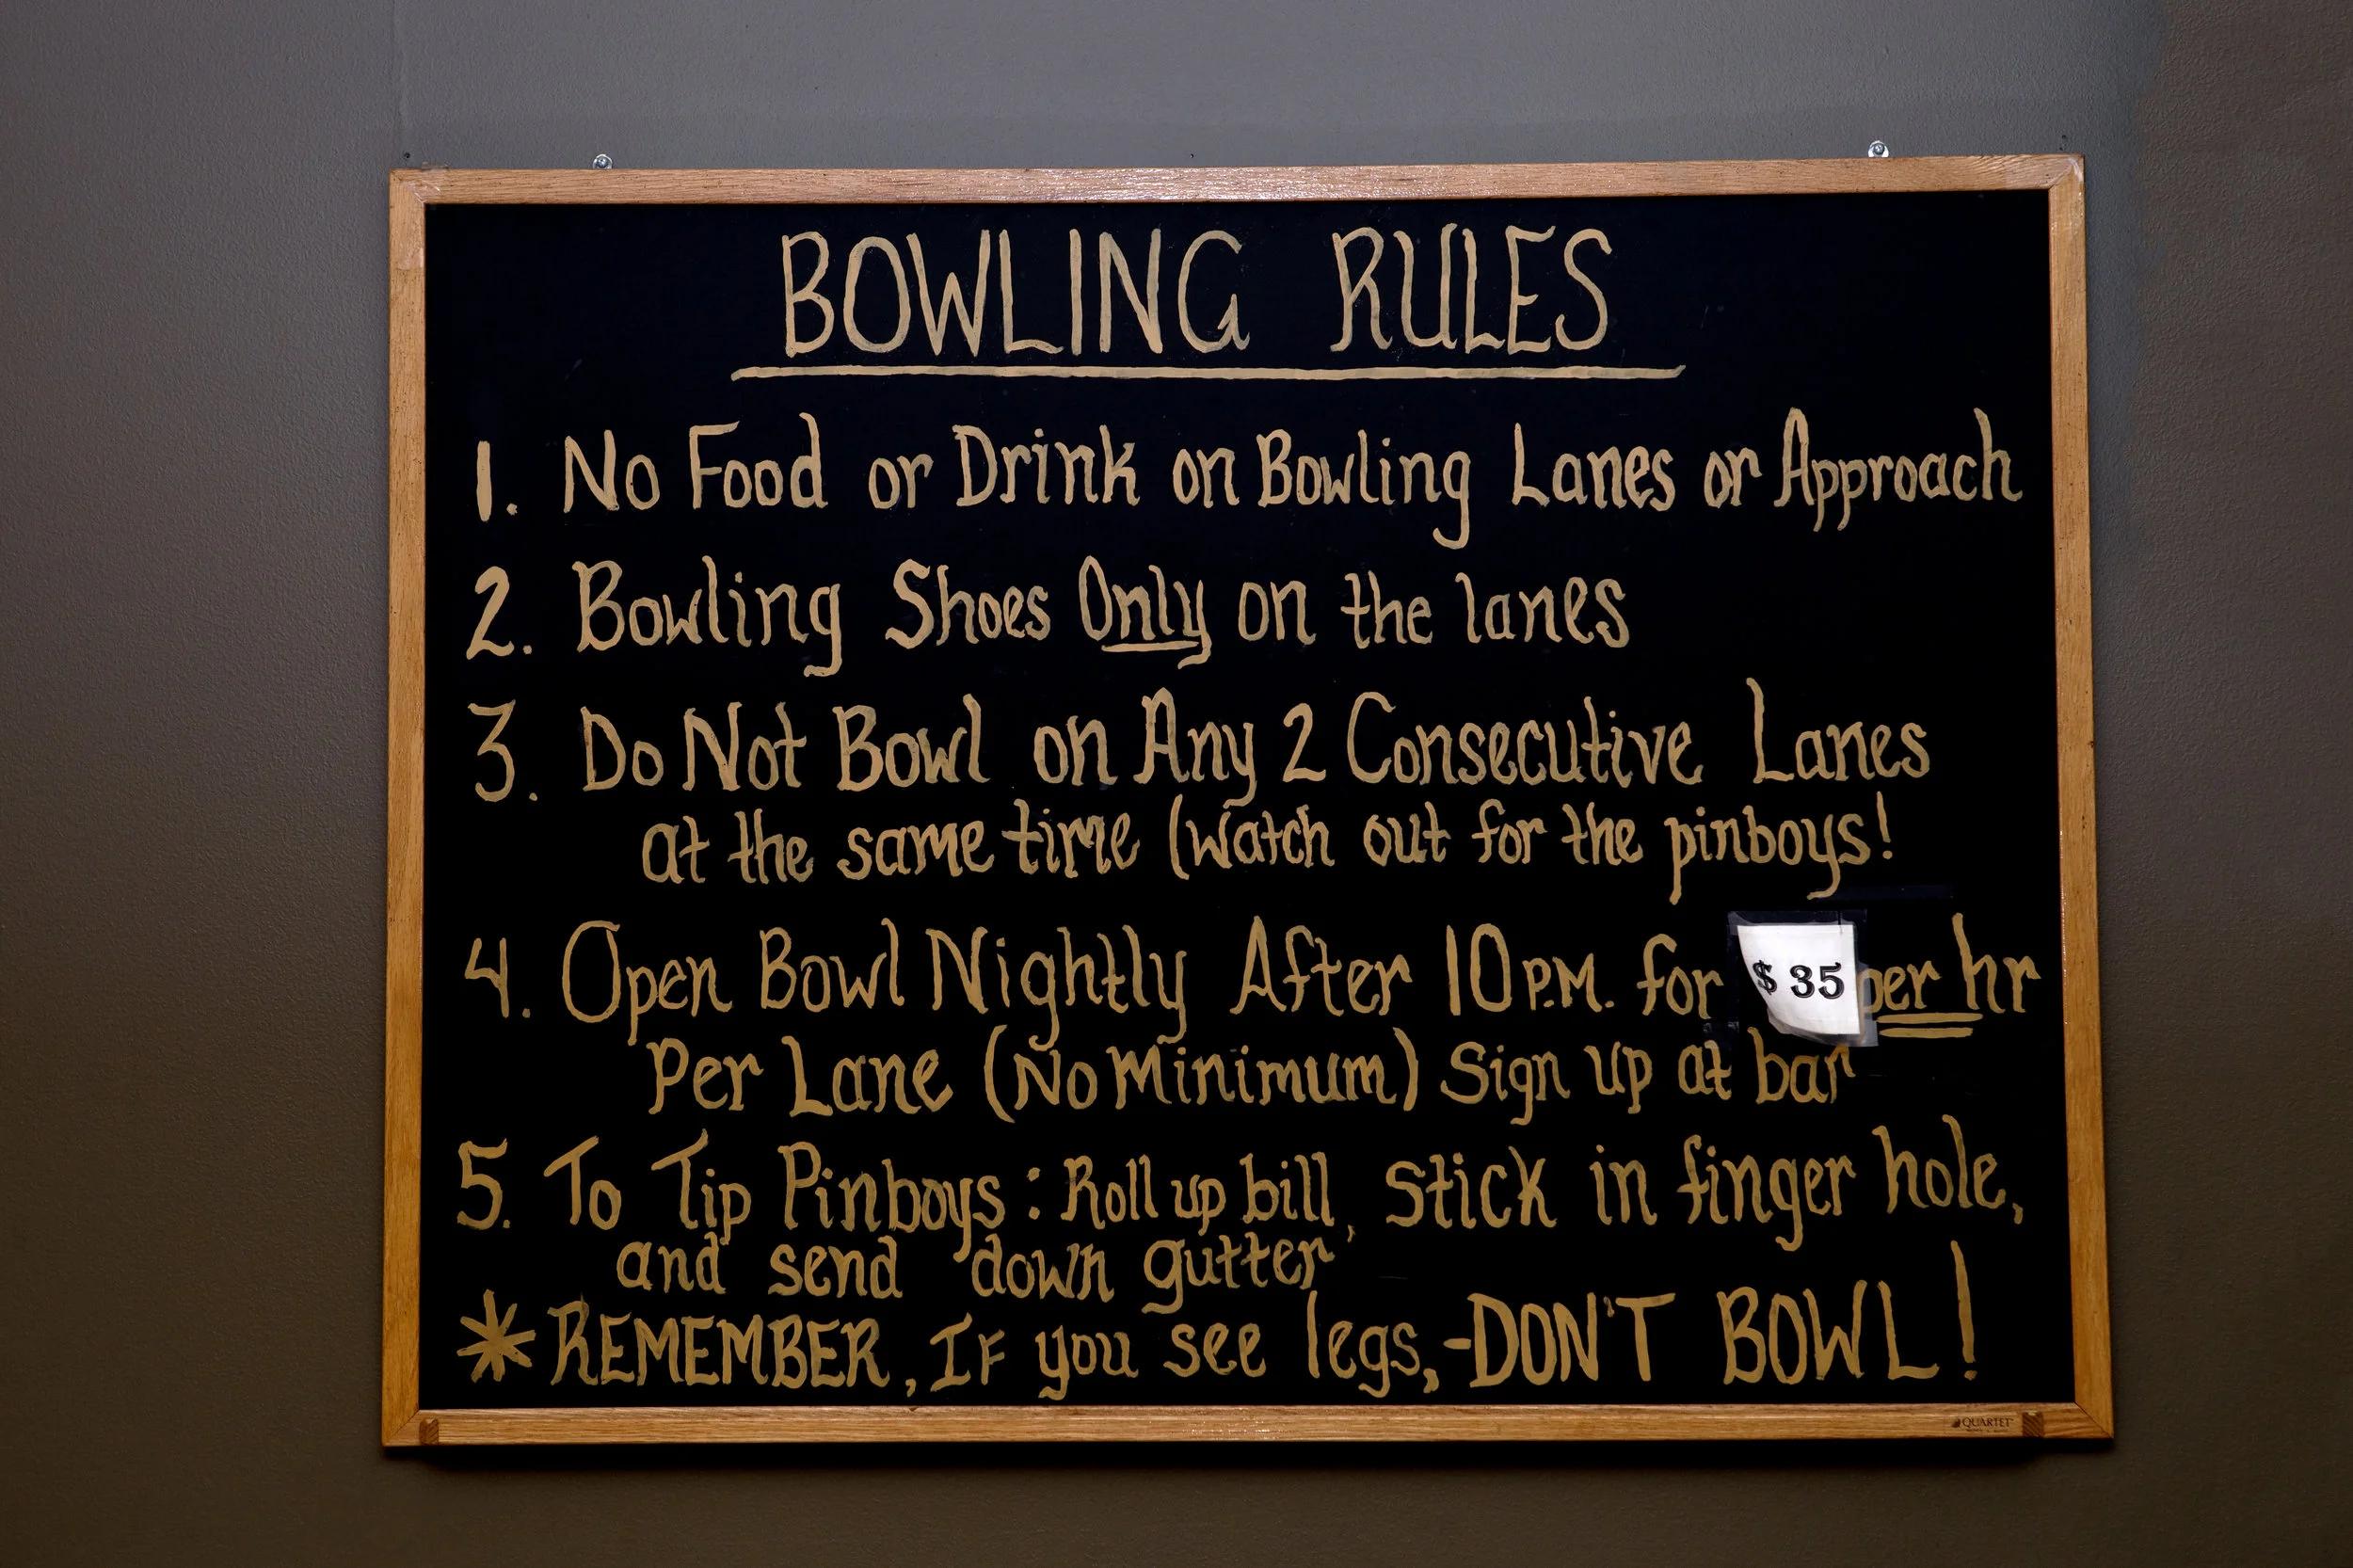 BOWLING RULES
1. No Food or Drink on Bowling Lanes or Approach
2. Bowling Shoes Only on the lanes
3. Do Not Bowl on Any 2 Consecutive Lanes
at the same time (watch out for the pinboys!
4. Open Bowl Nightly After 10 P.M. for $35 per hr
Per Lane (No Minimum) Sign up at bar
5. To Tip Pinboys: Roll up bill, stick in finger hole,
and send down gutter
* REMEMBER, IF you see legs,-DON'T BOWL!
QUARTET